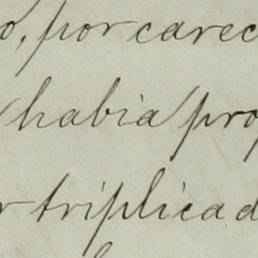 o, por carec
habia pro
r triplicad